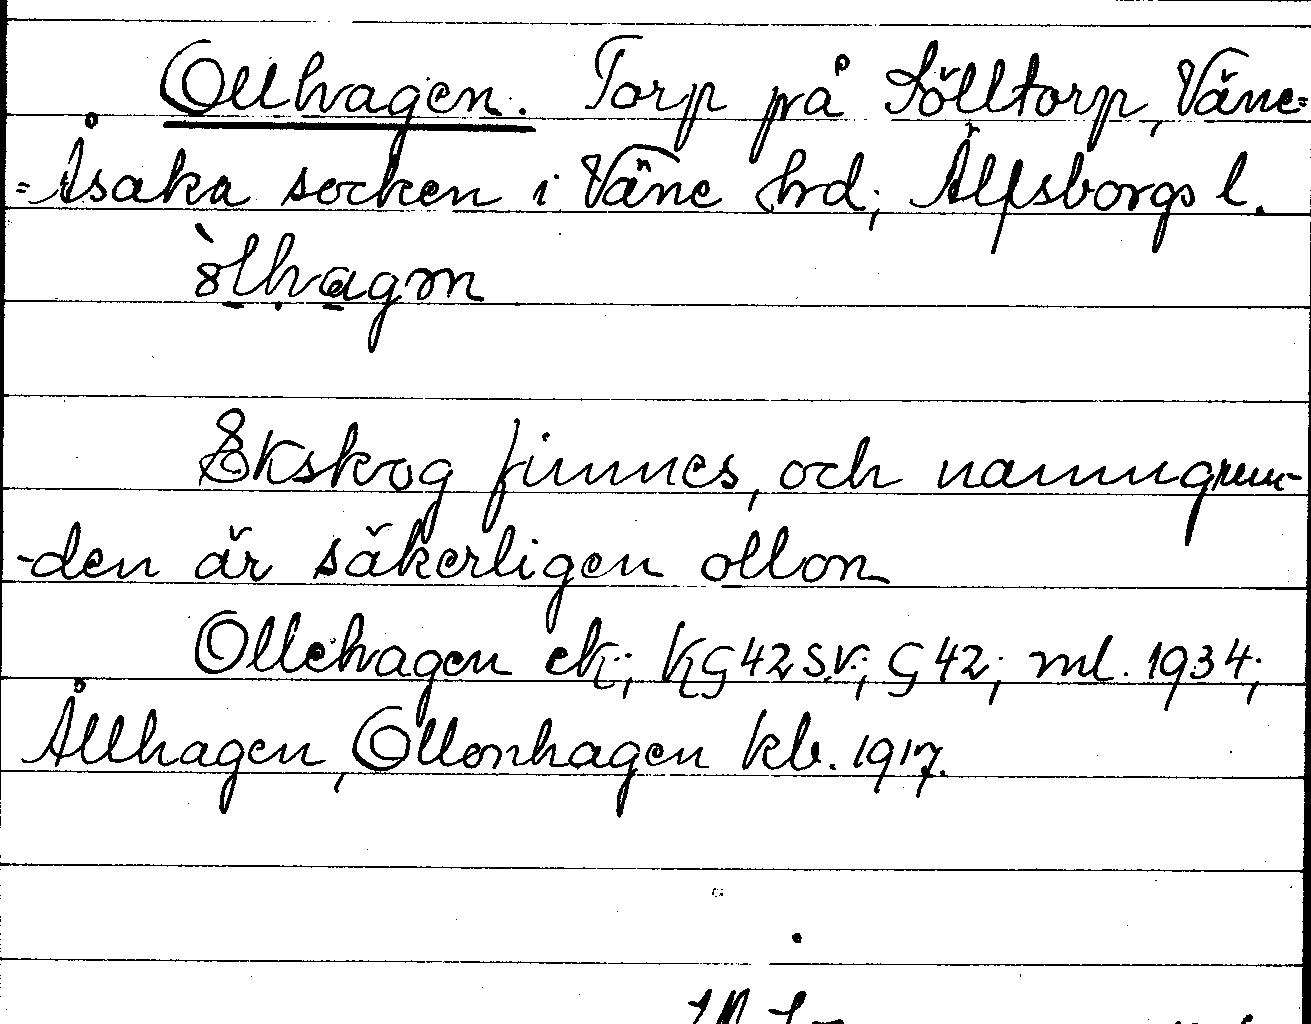 Ollhagen. Torp på Sölltorp, Väne=
=Åsaka socken i Väne hrd; Älfsborgs l.
Ekskog finnes, och namngrun-
-den är säkerligen ollon
Ollehagen ek; KG 42 S.V.; G 42; ml. 1934;
Ållhagen, Ollonhagen kb. 1917.